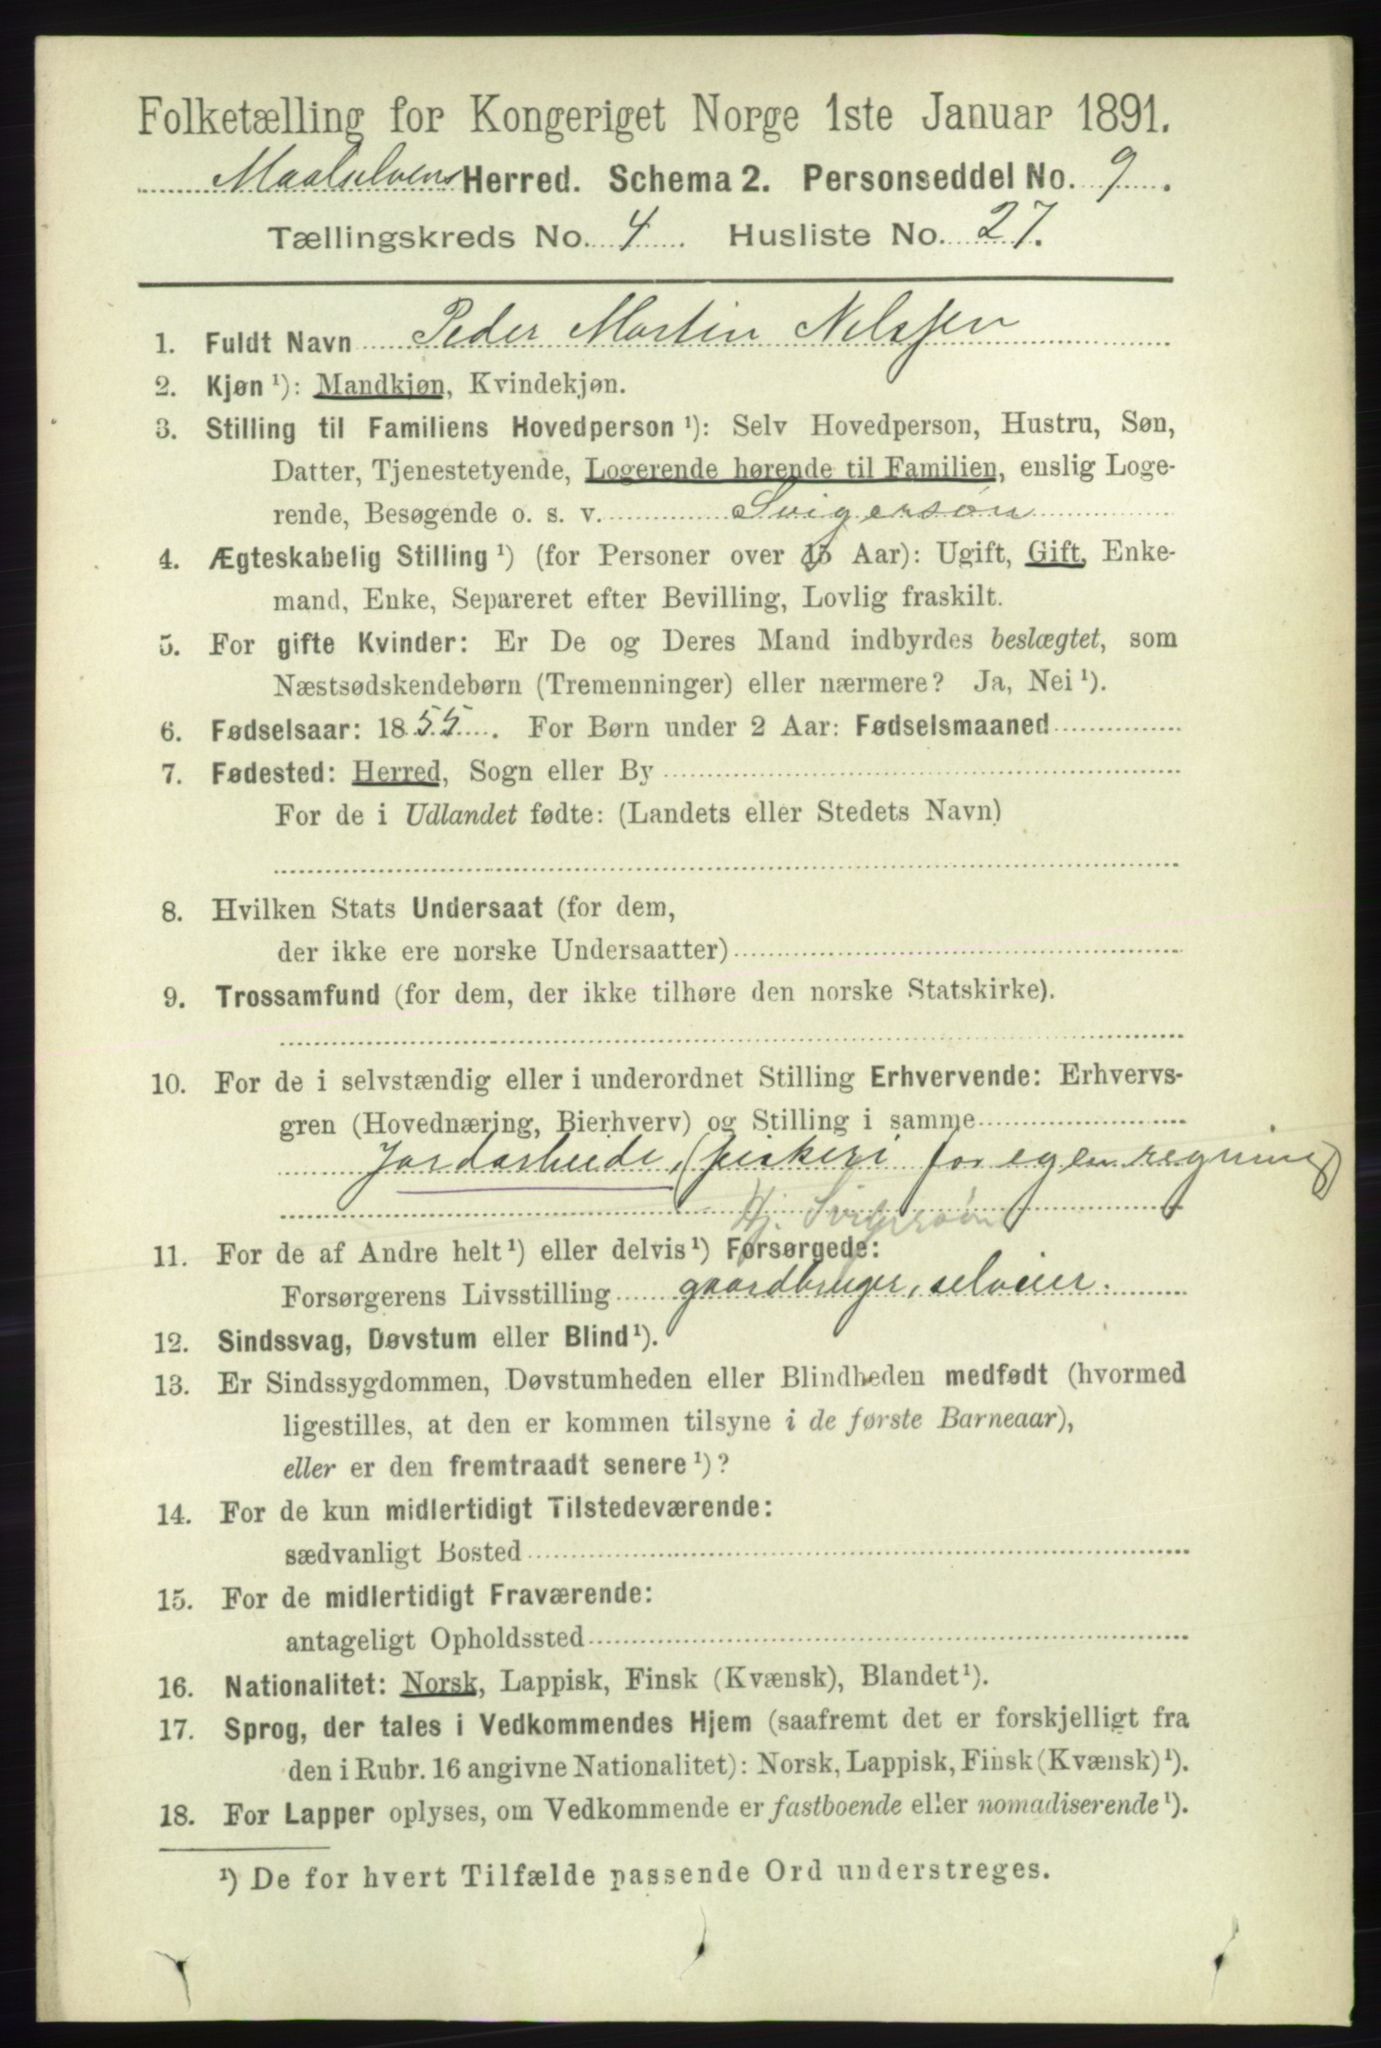 Folketælling for Kongeriget Norge 1ste Januar 1891.
Maalselvens Herred. Schema 2. Personseddel No. 9.
Tællingskreds No. 4. Husliste No. 27.
1. Fuldt Navn Peder Martin Nilssen
2. Kjøn ¹): Mandkjøn, Kvindekjøn.
3. Stilling til Familiens Hovedperson ¹): Selv Hovedperson, Hustru, Søn,
Datter, Tjenestetyende, Logerende hørende til Familien, enslig Loge-
rende, Besøgende o. s. v. Svigersøn
4. Ægteskabelig Stilling ¹) (for Personer over 15 Aar): Ugift, Gift, Enke-
mand, Enke, Separeret efter Bevilling, Lovlig fraskilt.
5. For gifte Kvinder: Er De og Deres Mand indbyrdes beslægtet, som
Næstsødskendebørn (Tremenninger) eller nærmere? Ja, Nei ¹).
6. Fødselsaar: 1855. For Børn under 2 Aar: Fødselsmaaned
7. Fødested: Herred, Sogn eller By
For de i Udlandet fødte: (Landets eller Stedets Navn)
8. Hvilken Stats Undersaat (for dem,
der ikke ere norske Undersaatter)
9. Trossamfund (for dem, der ikke tilhøre den norske Statskirke).
10. For de i selvstændig eller i underordnet Stilling Erhvervende: Erhvervs-
gren (Hovednæring, Bierhverv) og Stilling i samme
Jordarbeide, (fiskeri for egen regning)
Hj. Svigersøn
11. For de af Andre helt ¹) eller delvis ¹) Forsørgede:
Forsørgerens Livsstilling gaardbruger, selveier.
12. Sindssvag, Døvstum eller Blind ¹).
13. Er Sindssygdommen, Døvstumheden eller Blindheden medfødt (hvormed
ligestilles, at den er kommen tilsyne i de første Barneaar),
eller er den fremtraadt senere ¹)?
14. For de kun midlertidigt Tilstedeværende:
sædvanligt Bosted
15. For de midlertidigt Fraværende:
antageligt Opholdssted
16. Nationalitet: Norsk, Lappisk, Finsk (Kvænsk), Blandet ¹).
17. Sprog, der tales i Vedkommendes Hjem (saafremt det er forskjelligt fra
den i Rubr. 16 angivne Nationalitet): Norsk, Lappisk, Finsk (Kvænsk) ¹).
18. For Lapper oplyses, om Vedkommende er fastboende eller nomadiserende ¹).
¹) De for hvert Tilfælde passende Ord understreges.